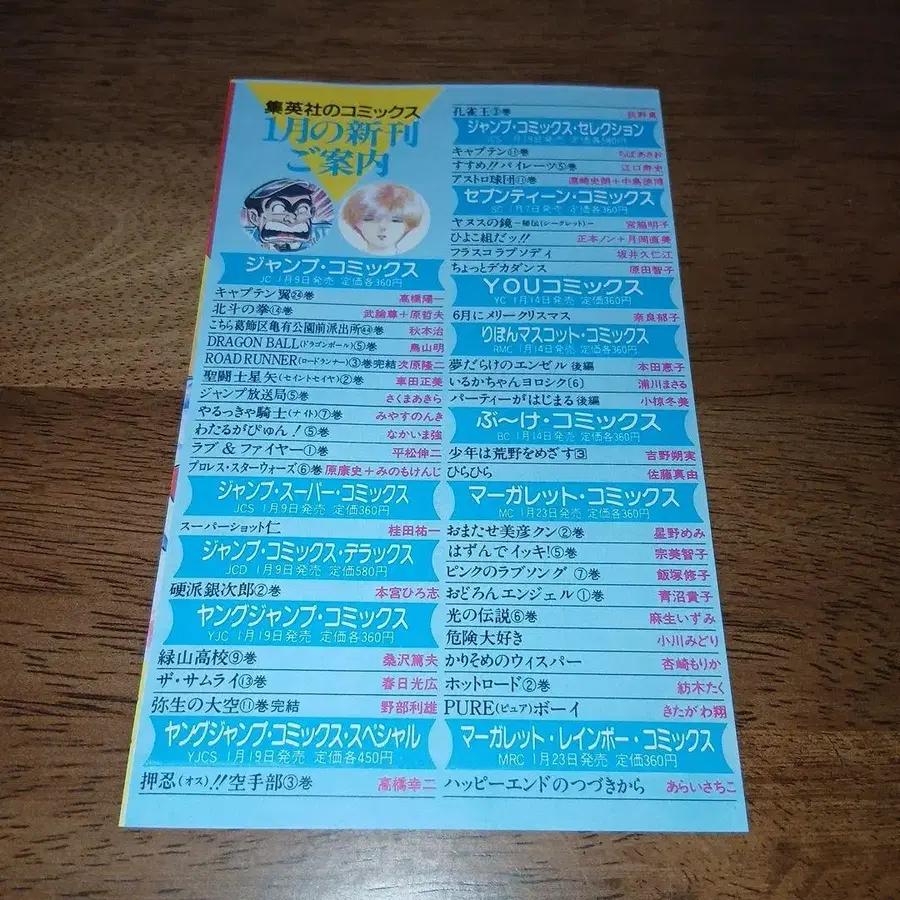 集英社のコミックス
1月の新刊
ご案内
ジャンプ・コミックス
JC 1月9日発売 定価各360円
キャプテン翼㉔巻 高橋陽一
北斗の拳⑭巻 武論尊+原哲夫
こちら葛飾区亀有公園前派出所㊹巻 秋本治
DRAGON BALL(ドラゴンボール)⑤巻 鳥山明
ROAD RUNNER(ロードランナー)③巻完結 次原隆二
聖闘士星矢(セイントセイヤ)②巻 車田正美
ジャンプ放送局⑤巻 さくまあきら
やるっきゃ騎士(ナイト)⑦巻 みやすのんき
わたるがぴゅん!⑤巻 なかいま強
ラブ&ファイヤー①巻 平松伸二
プロレス・スターウォーズ⑥巻 原康史+みのもけんじ
ジャンプ・スーパー・コミックス
JCS 1月9日発売 定価360円
スーパーショット仁 桂田祐一
ジャンプ・コミックス・デラックス
JCD 1月9日発売 定価580円
硬派銀次郎②巻 本宮ひろ志
ヤングジャンプ・コミックス
YJC 1月19日発売 定価各360円
緑山高校⑨巻 桑沢篤夫
ザ・サムライ⑬巻 春日光広
弥生の大空⑪巻完結 野部利雄
ヤングジャンプ・コミックス・スペシャル
YJCS 1月19日発売 定価各450円
押忍(オス)!!空手部③巻 高橋幸二
孔雀王②巻 荻野真
ジャンプ・コミックス・セレクション
キャプテン⑪巻 ちばあきお
すすめ!!パイレーツ⑤巻 江口寿史
アストロ球団⑪巻 遠崎史朗+中島徳博
セブンティーン・コミックス
SC 1月7日発売 定価各360円
ヤヌスの鏡-秘伝(シークレット)- 宮脇明子
ひよこ組だッ!! 正本ノン+月岡直美
フラスコラプソディ 坂井久仁江
ちょっとデカダンス 原田智子
YOUコミックス
YC 1月14日発売 定価360円
6月にメリークリスマス 奈良郁子
りぼんマスコット・コミックス
RMC 1月14日発売 定価各360円
夢だらけのエンゼル 後編 本田恵子
いるかちゃんヨロシク〔6〕 浦川まさる
パーティーがはじまる 後編 小椋冬美
ぶ〜け・コミックス
BC 1月14日発売 定価各360円
少年は荒野をめざす③ 吉野朔実
ひらひら 佐藤真由
マーガレット・コミックス
MC 1月23日発売 定価各360円
おまたせ美彦クン②巻 星野めみ
はずんでイッキ!⑤巻 宗美智子
ピンクのラブソング ⑦巻 飯塚修子
おどろんエンジェル ①巻 青沼貴子
光の伝説⑥巻 麻生いずみ
危険大好き 小川みどり
かりそめのウィスパー 杏崎もりか
ホットロード②巻 紡木たく
PURE(ピュア)ボーイ きたがわ翔
マーガレット・レインボー・コミックス
MRC 1月23日発売 定価360円
ハッピーエンドのつづきから あらいさちこ